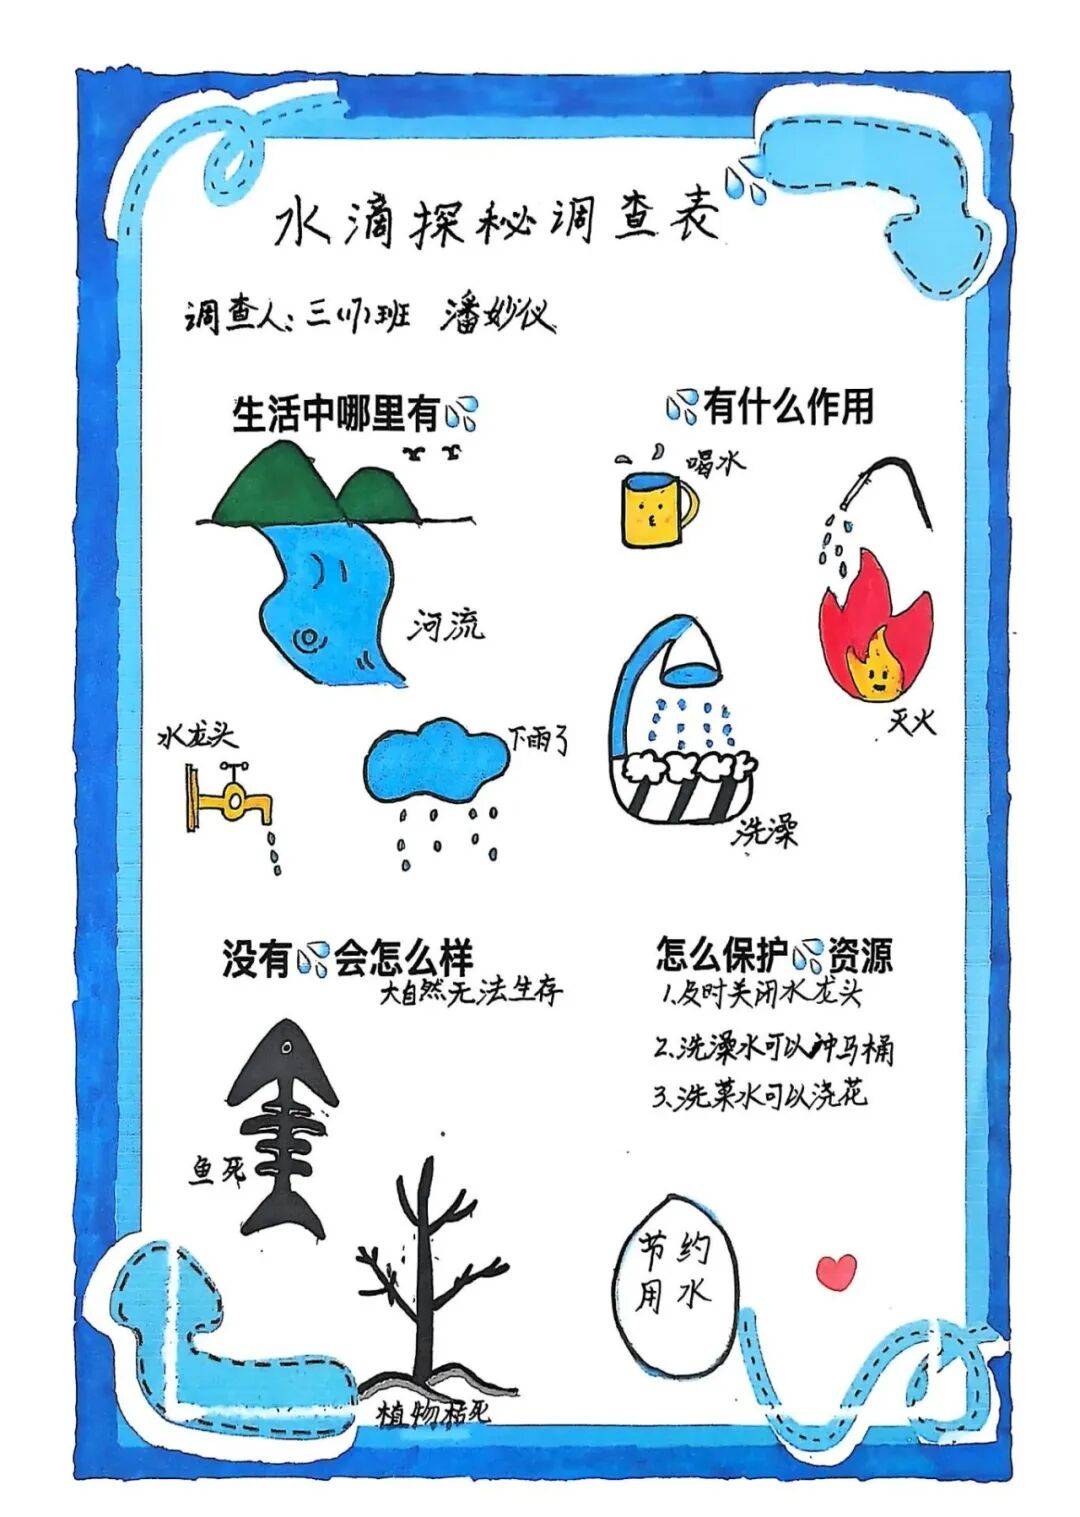 水滴探秘调查表
调查人：三(1)班 潘妙仪
生活中哪里有💦
💦有什么作用
喝水
河流
灭火
水龙头
下雨了
洗澡
没有💦会怎么样
大自然无法生存
怎么保护💦资源
1.及时关闭水龙头
2.洗澡水可以冲马桶
3.洗菜水可以浇花
鱼死
节约
用水
植物枯死